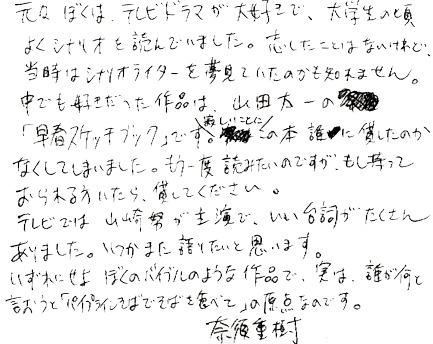 元々 ぼくは、テレビドラマが大好きで、大学生の頃
よくシナリオを読んでいました。応したことはないけれど、
当時はシナリオライターを夢見ていたのかも知れません。
中でも好きだった作品は、山田太一の
「早春スケッチブック」です。寂しいことに この本 誰に貸したのか
なくしてしまいました。もう一度 読みたいのですが、もし持って
おられる方いたら、貸してください。
テレビでは 山崎努が主演で、いい台詞がたくさん
ありました。いつかまた語りたいと思います。
いずれにせよ ぼくのバイブルのような作品で、実は、誰が何と
言おうと「パイプラインそばでそばを食べて」の原点なのです。
奈須重樹